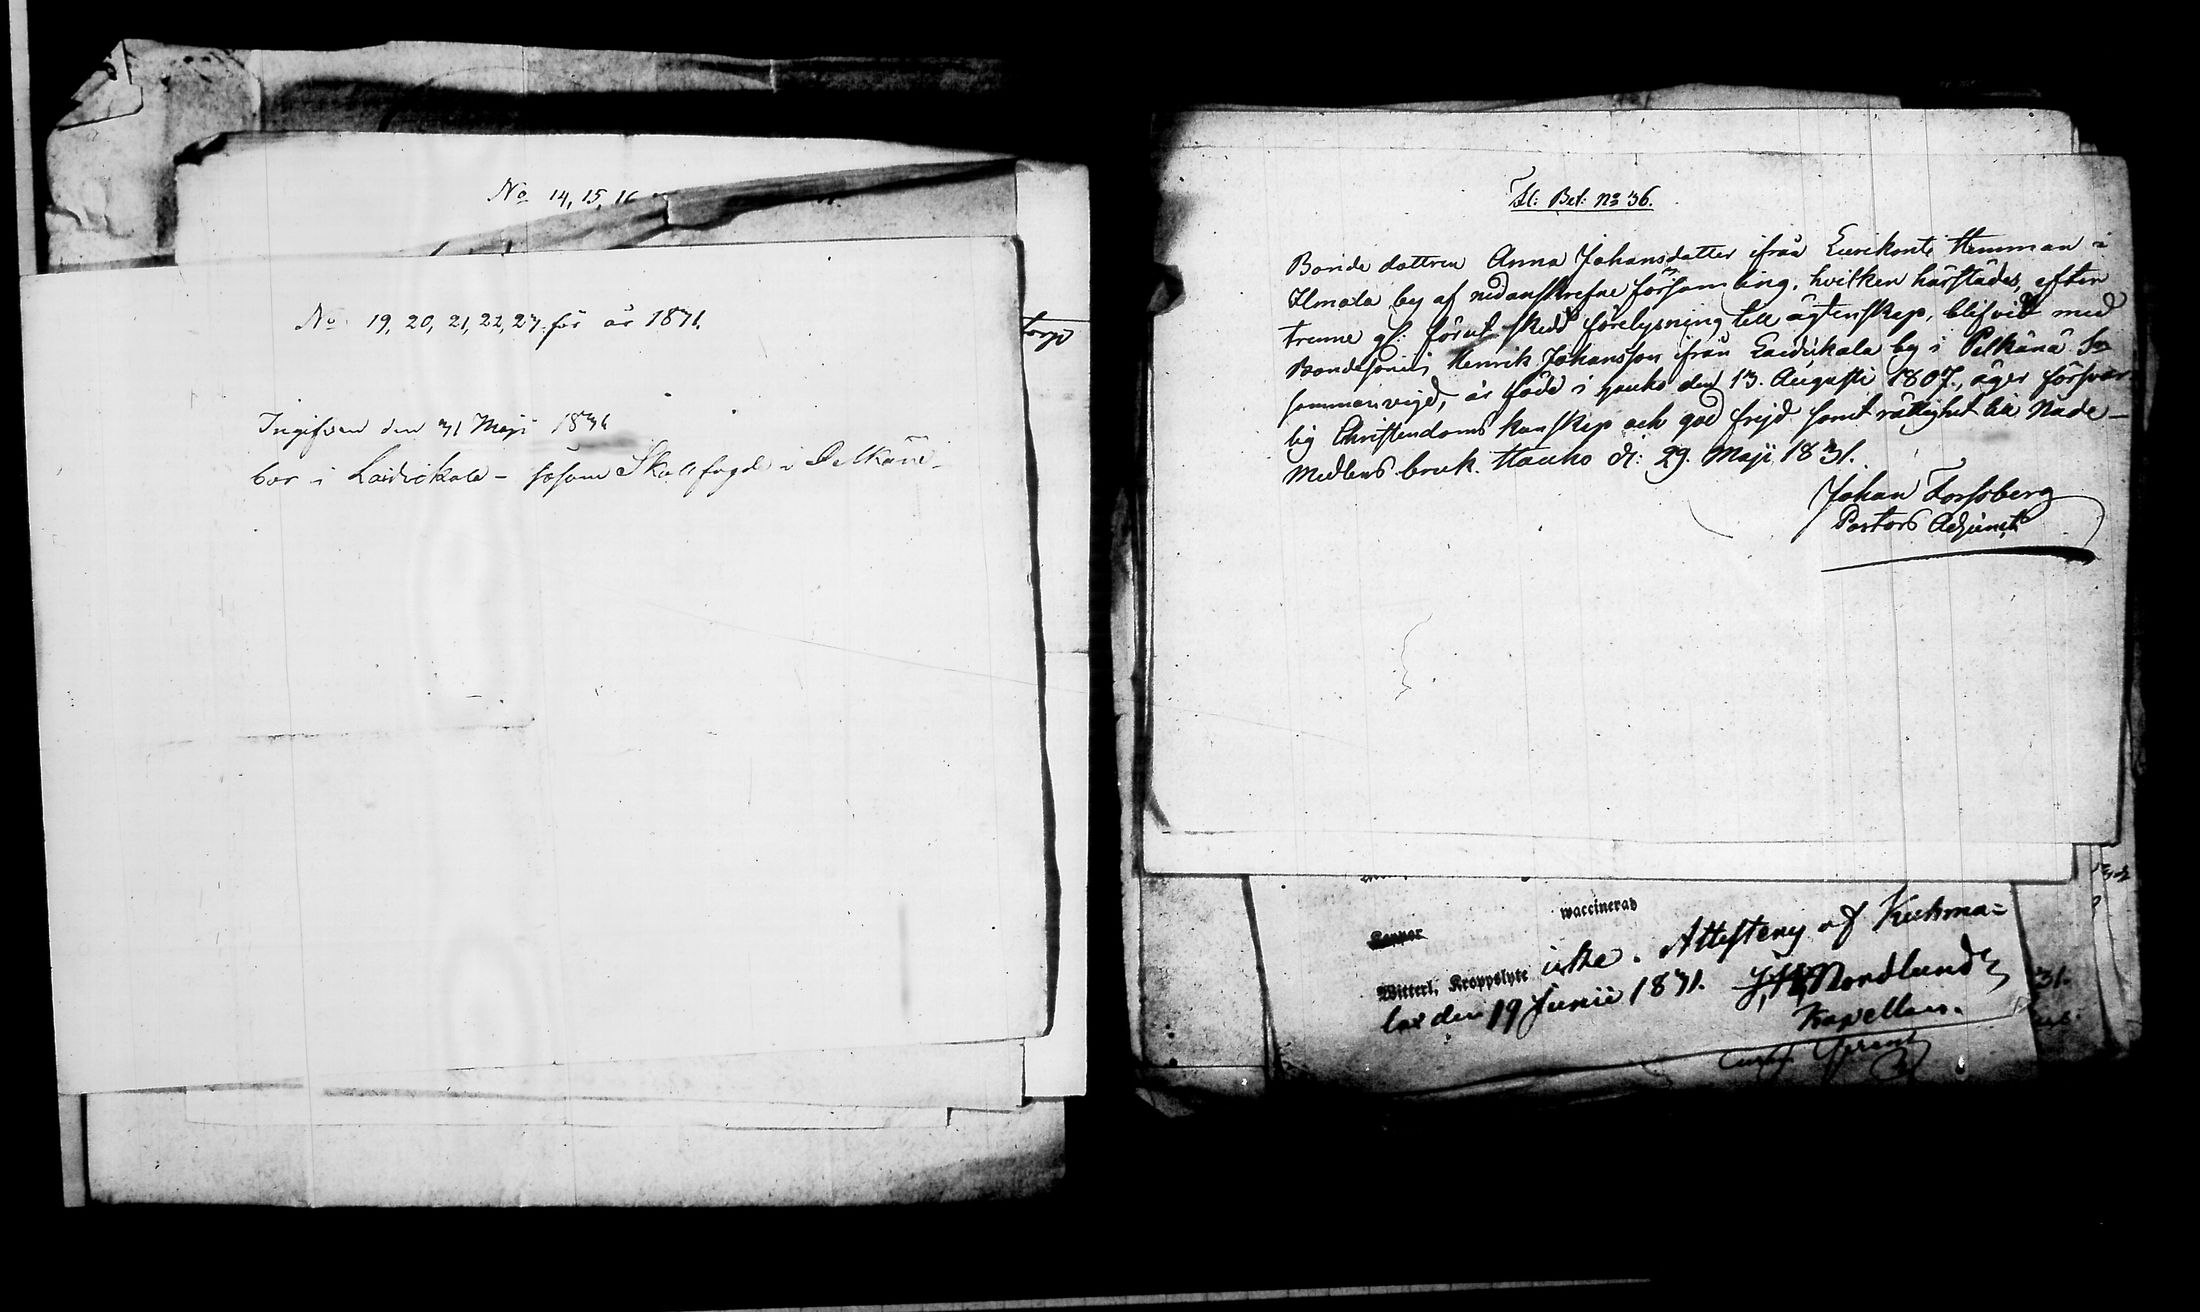 No 14, 15, 16
No 19, 20, 21, 22, 23 för år 1831.
Ingifven den 31 Maji 1831
bor i Laidikala – såsom Skallfogde i Pelkäne
torp
Fl: Bet: No 36.
Bonde dottren Anna Johansdotter ifrån Hemman i
Ilmola by af nedanskrefne församling, hvilken härstädes, efter
trenne gr: förut skedd förelysning till ägtenskap, blifvit med
Bondesonen Henrik Johansson ifrån Laidikala by i Pelkäne Sn
sammanvigd, är född i Hauho den 13. Augusti 1807., äger försvar-
lig Christendoms kunskap och god frejd samt rättighet till Nåde-
Medlens bruk. Hauho d: 29. Maji 1831.
Johan Forssberg
Pastors Adjunct
waccinerad
Koppor
Witterl. Kroppslyte icke. Attesteras af Kuhma=
lax den 19 Junii 1831. J. H. Nordlund
Kapellan.
31.